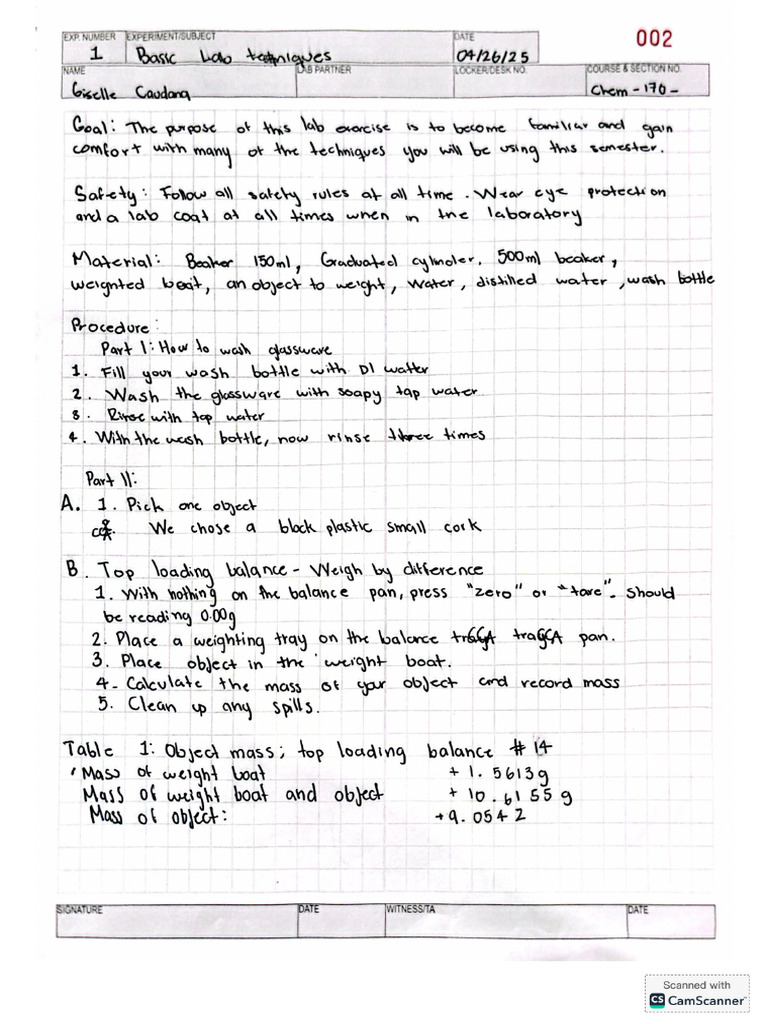 EXP. NUMBER EXPERIMENT/SUBJECT DATE 002
1 Basic Lab techniques 04/26/25
NAME LAB PARTNER LOCKER/DESK NO. COURSE & SECTION NO.
Giselle Chem - 170 -
Goal: The purpose of this lab exercise is to become familiar and gain
comfort with many of the techniques you will be using this semester.
Safety: Follow all safety rules at all time. Wear eye protection
and a lab coat at all times when in the laboratory
Material: Beaker 150ml, Graduated cylinder, 500ml beaker,
weighted boat, an object to weight, water, distilled water, wash bottle
Procedure:
Part I: How to wash glassware
1. Fill your wash bottle with DI watter
2. Wash the glassware with soapy tap water
3. Rinse with tap water
4. With the wash bottle, now rinse three times
Part II:
A. 1. Pick one object
We chose a black plastic small cork
B. Top loading balance - Weigh by difference
1. With nothing on the balance pan, press "zero" or "tare". Should
be reading 0.00g
2. Place a weighting tray on the balance pan.
3. Place object in the weight boat.
4- Calculate the mass of your object and record mass
5. Clean up any spills.
Table 1: Object mass; top loading balance # 14
Mass of weight boat + 1.5613g
Mass of weight boat and object + 10.6155g
Mass of object: +9.0542
SIGNATURE DATE WITNESS/TA DATE
Scanned with
CS CamScanner